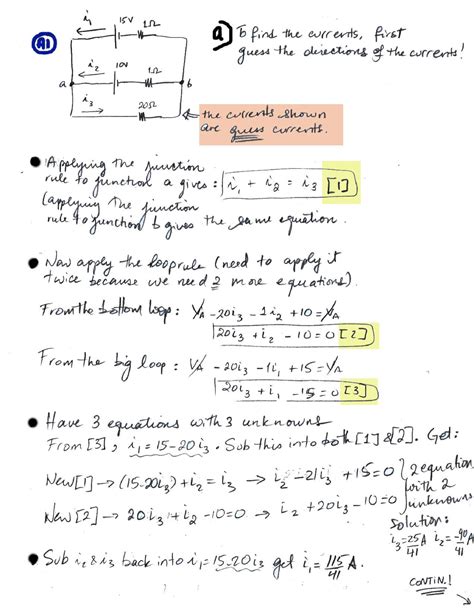 A1
i₁ 15V 1Ω
i₂ 10V 1Ω
a b
i₃ 20Ω
a) To find the currents, first
guess the directions of the currents!
← the currents shown
are guess currents.
● Applying the junction
rule to junction a gives: i₁ + i₂ = i₃ [1]
(applying the junction
rule to junction b gives the same equation.
● Now apply the loop rule (need to apply it
twice because we need 2 more equations).
From the bottom loop: V_A - 20i₃ - 1i₂ + 10 = V_A
20i₃ + i₂ - 10 = 0 [2]
From the big loop: V_A - 20i₃ - 1i₁ + 15 = V_A
20i₃ + i₁ - 15 = 0 [3]
● Have 3 equations with 3 unknowns
From [3], i₁ = 15-20i₃. Sub this into both [1] & [2]. Get:
New [1] → (15-20i₃) + i₂ = i₃ → i₂ - 21i₃ + 15 = 0
New [2] → 20i₃ + i₂ - 10 = 0 → i₂ + 20i₃ - 10 = 0
2 equation
with 2
unknowns
Solution:
i₃ = 25/41 A i₂ = -90/41 A
● Sub i₂ & i₃ back into i₁ = 15-20i₃ get i₁ = 115/41 A.
CONTIN.!